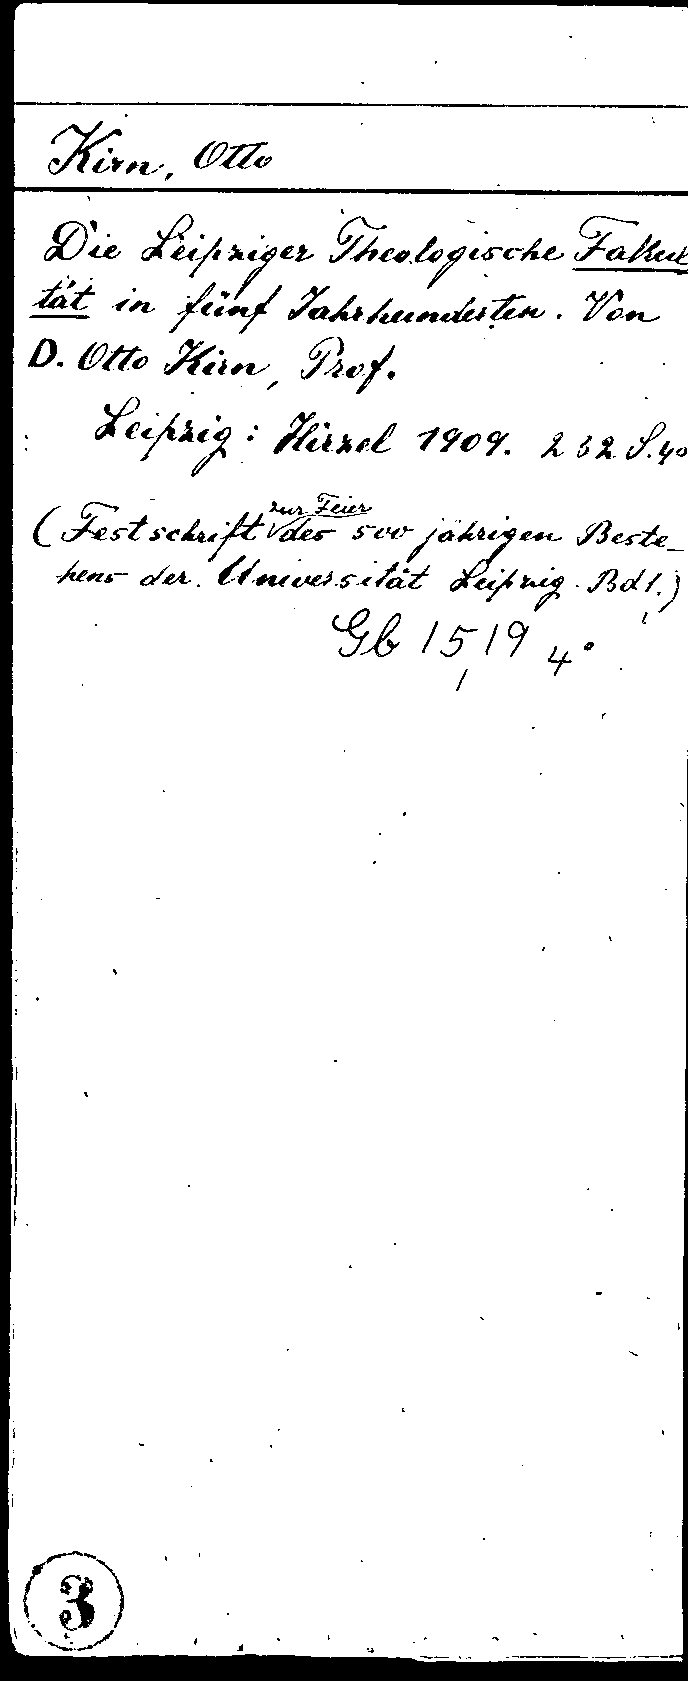 Kirn, Otto
Die Leipziger Theologische Fakul
tät in fünf Jahrhunderten. Von
D. Otto Kirn, Prof.
Leipzig: Hirzel 1909. 232 S. 4°
(Festschrift zur Feier des 500 jährigen Beste-
hens der Universität Leipzig. Bd 1.)
Gb 1519 4°
3